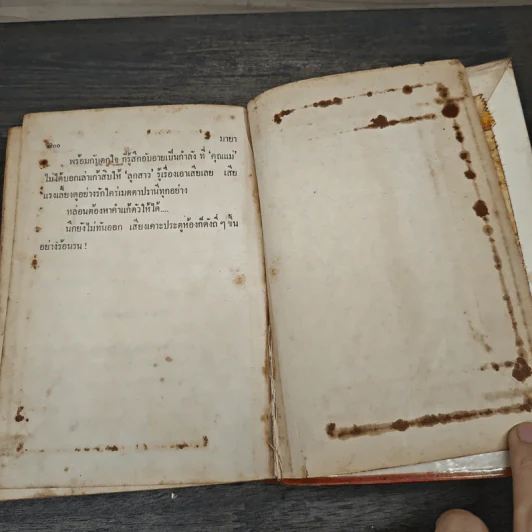 มายา
พร้อมกับตกใจ ก็รู้สึกอับอายเป็นกำลัง ที่ 'คุณแม่'
ไม่ได้บอกเล่าเก้าสิบให้ 'ลูกสาว' รู้เรื่องเอาเสียเลย เสีย
แรงเลี้ยงดูอย่างรักใคร่เมตตาปรานีทุกอย่าง
หล่อนต้องหาคำแก้ตัวให้ได้....
นึกยังไม่ทันออก เสียงเคาะประตูห้องก็ดังถี่ ๆ ขึ้น
อย่างร้อนรน !